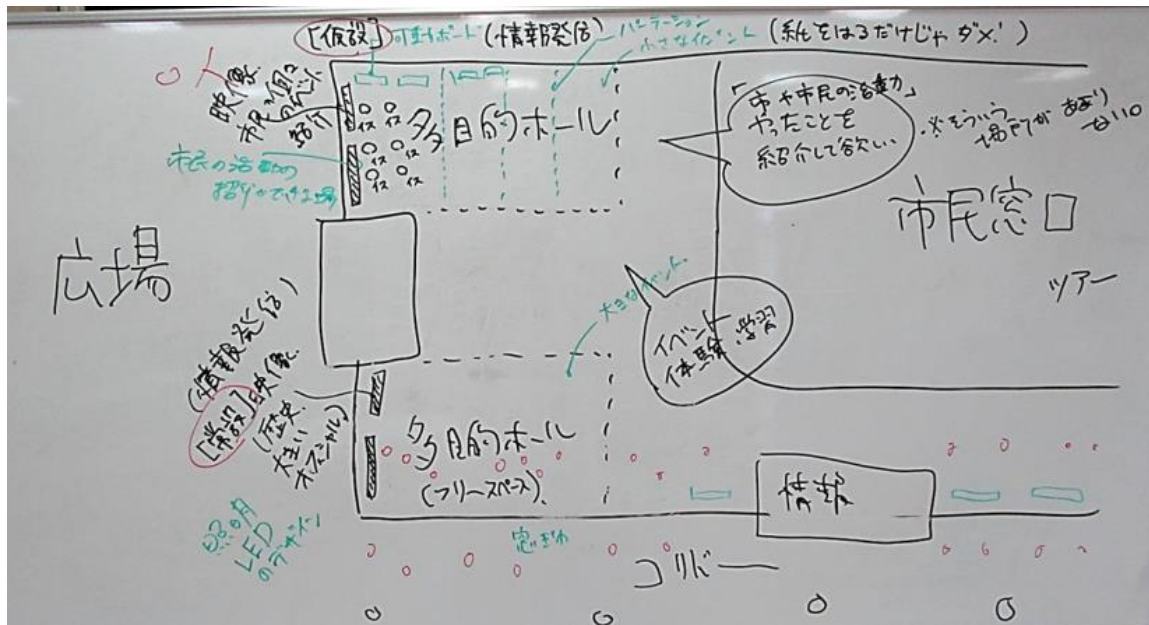 [仮設] 可動ボード (情報発信) パーテーション
小さなイベント (紙をはるだけじゃダメ!)
人
映像
市民
紹介
イス イス
イス イス
イス イス
多目的ホール
市民の活動の
紹介ができる場
「市や市民の活動」
やったことを
紹介して欲しい
※そういう
場所があまり
ない。
市民窓口
ツアー
広場
大きなイベント
イベント
体験 学習
(情報発信)
[常設] 映像
(歴史
大きい
オフィシャル)
多目的ホール
(フリースペース)
情報
照明
LED
のデザイン
窓ぎわ
コリドー